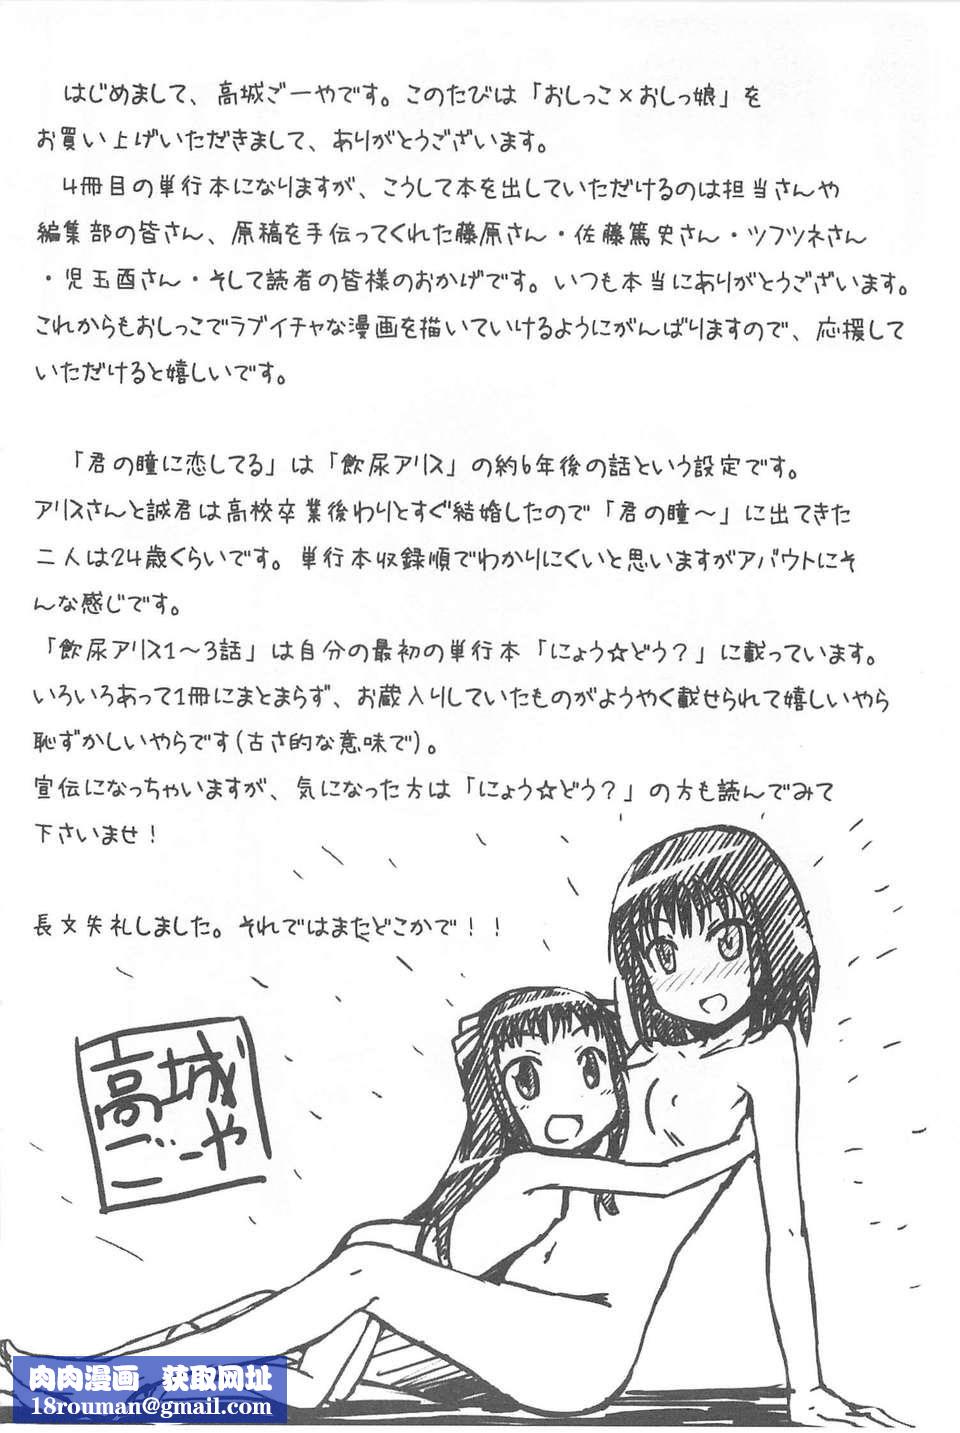 はじめまして、高城ごーやです。このたびは「おしっこ×おしっ娘」を
お買い上げいただきまして、ありがとうございます。
4冊目の単行本になりますが、こうして本を出していただけるのは担当さんや
編集部の皆さん、原稿を手伝ってくれた藤原さん・佐藤篤史さん・ツフツネさん
・児玉酉さん・そして読者の皆様のおかげです。いつも本当にありがとうございます。
これからもおしっこでラブイチャな漫画を描いていけるようにがんばりますので、応援して
いただけると嬉しいです。
「君の瞳に恋してる」は「飲尿アリス」の約6年後の話という設定です。
アリスさんと誠君は高校卒業後わりとすぐ結婚したので「君の瞳～」に出てきた
二人は24歳くらいです。単行本収録順でわかりにくいと思いますがアバウトにそ
んな感じです。
「飲尿アリス1～3話」は自分の最初の単行本「にょう☆どう?」に載っています。
いろいろあって1冊にまとまらず、お蔵入りしていたものがようやく載せられて嬉しいやら
恥ずかしいやらです(古さ的な意味で)。
宣伝になっちゃいますが、気になった方は「にょう☆どう?」の方も読んでみて
下さいませ!
長文失礼しました。それではまたどこかで!!
高城
ごーや
肉肉漫画 获取网址
18rouman@gmail.com